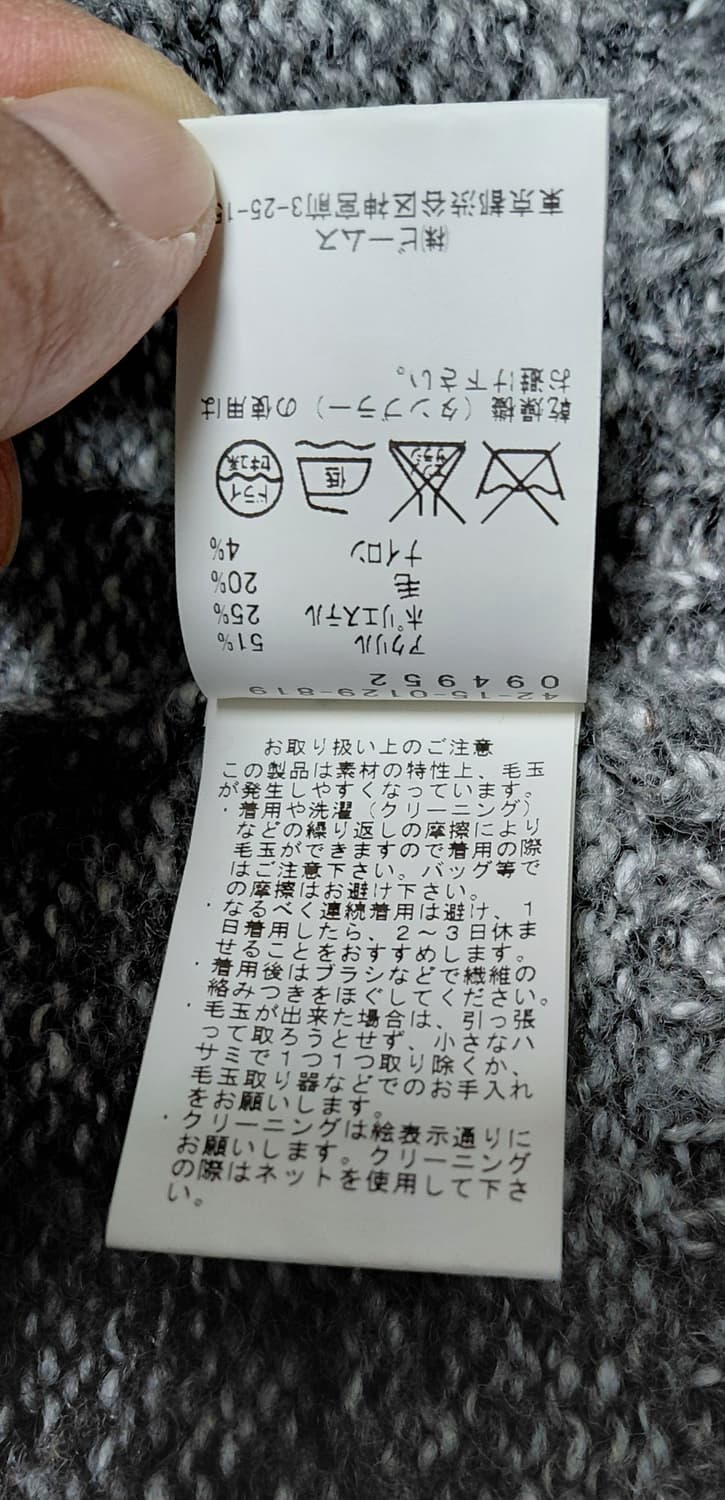 42-15-0129-819
094952
アクリル 51%
ポリエステル 25%
毛 20%
ナイロン 4%
エンソ
サラシ
低
ドライ
セキユ系
乾燥機（タンブラー）の使用は
お避け下さい。
㈱ビームス
東京都渋谷区神宮前3-25-15
お取り扱い上のご注意
この製品は素材の特性上、毛玉
が発生しやすくなっています。
・着用や洗濯（クリーニング）
などの繰り返しの摩擦により
毛玉ができますので着用の際
はご注意下さい。バッグ等で
の摩擦はお避け下さい。
・なるべく連続着用は避け、１
日着用したら、２～３日休ま
せることをおすすめします。
・着用後はブラシなどで繊維の
絡みつきをほぐしてください。
・毛玉が出来た場合は、引っ張
って取ろうとせず、小さなハ
サミで１つ１つ取り除くか、
毛玉取り器などでのお手入れ
をお願いします。
・クリーニングは絵表示通りに
お願いします。クリーニング
の際はネットを使用して下さ
い。